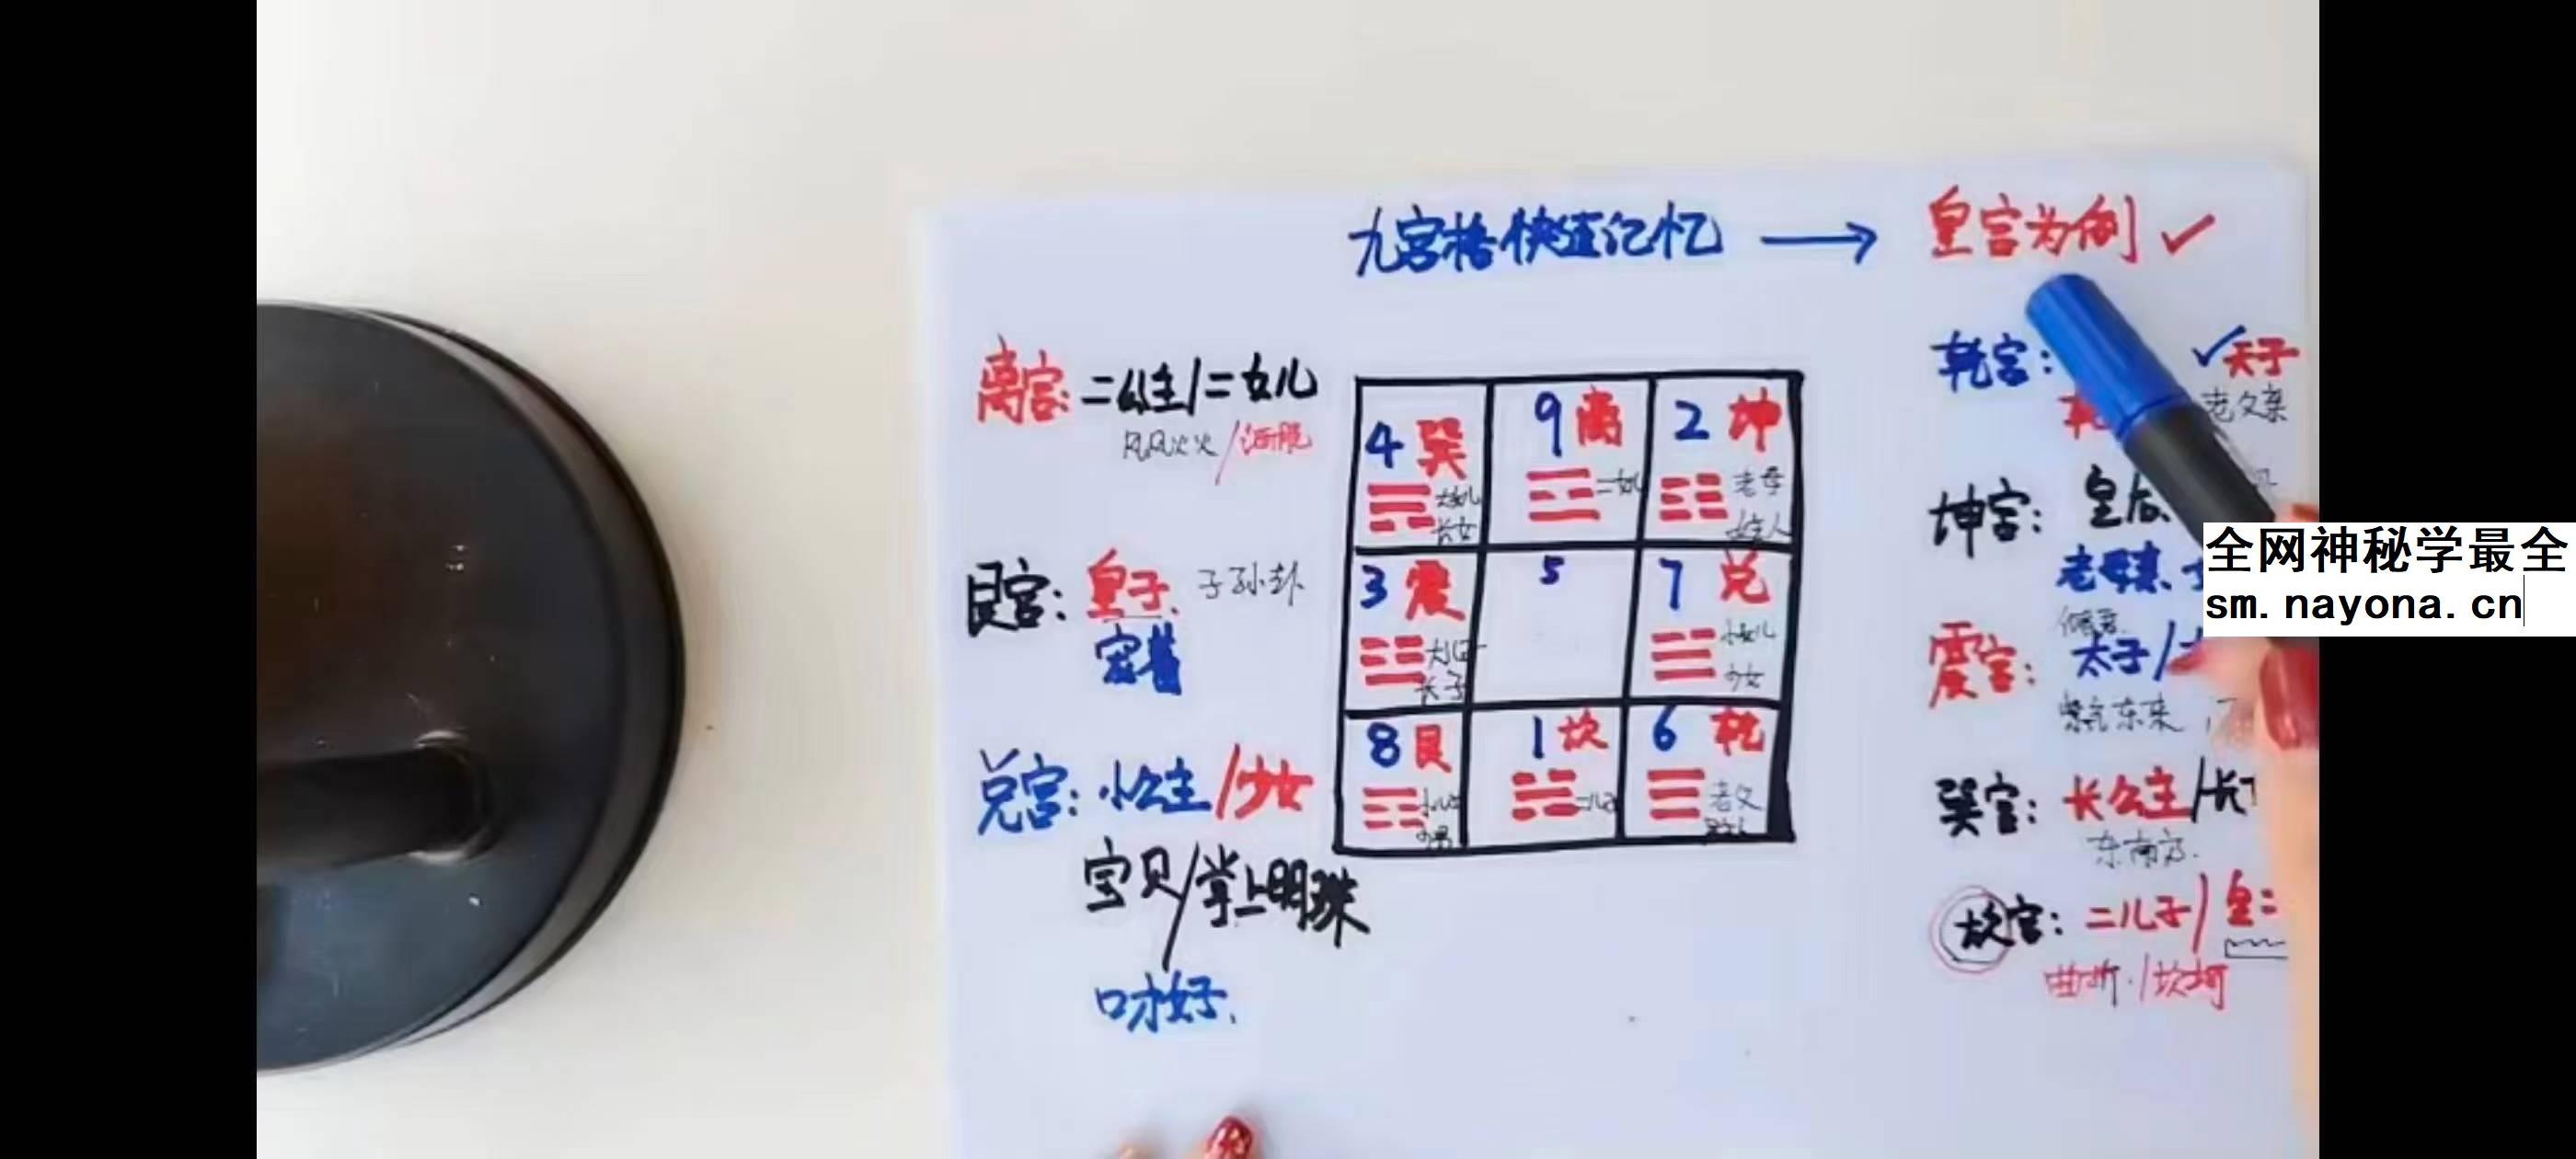 九宫格快速记忆 → 皇宫为例 ✓
离宫: 二公主/二女儿
风风火火/洒脱
艮宫: 皇子、子孙卦
宠着
兑宫: 小公主/少女
宝贝/掌上明珠
口才好、
4 巽
长女
9 离
二女儿
2 坤
老母
3 震
长子
5
7 兑
小女儿
少女
8 艮
少男
1 坎
6 乾
老父
乾宫: ✓天子
老父亲
坤宫: 皇后、
老母亲、
震宫: 太子/
紫气东来
巽宫: 长公主/长
东南方.
坎宫: 二儿子/皇二
曲折·/坎坷
全网神秘学最全
sm.nayona.cn